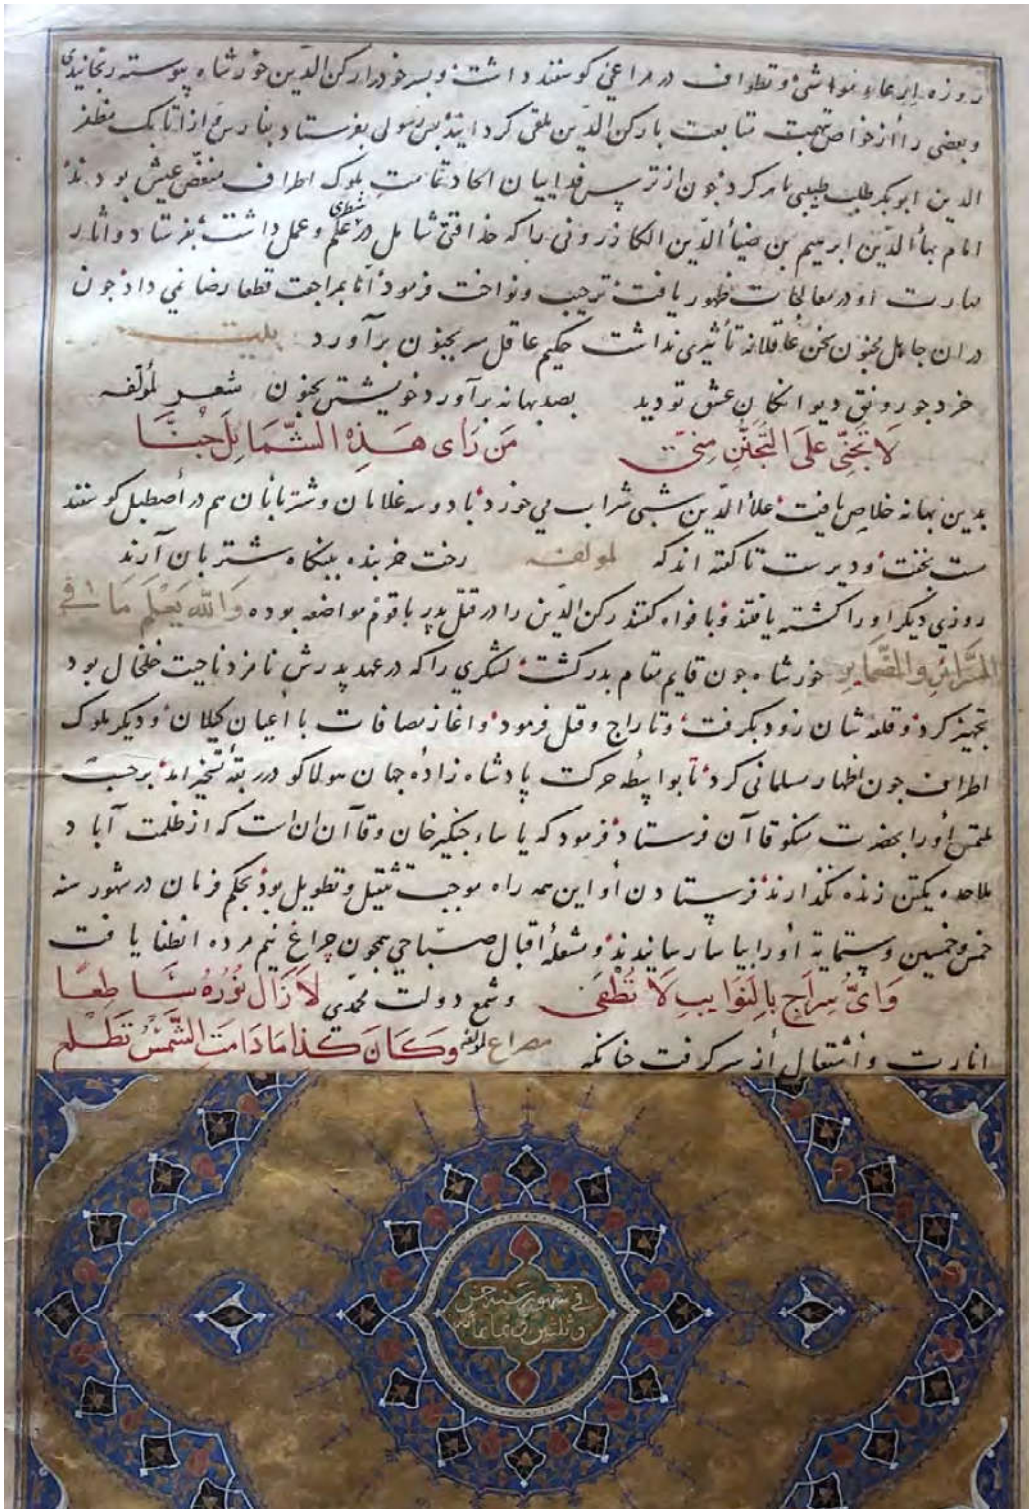 روزه بر عاء مواشی و تطواف در مراعی کوسفند داشت و پسر خود را رکن الدین خورشاه پیوسته رنجانیدی
و بعضی را از خواص تهمت متابعت با رکن الدین ملقی کردانید پس رسولی بفرستاد بفارس و از اتابک مظفر
الدین ابوبکر طلب طبیبی ماهر کرد جون از ترس فداییان الحاد تمامت ملوک اطراف منغص عیش بودند
امام بهاء الدین ابرهیم بن ضیاء الدین الکازرونی را که حذاقتی شامل در شطری علم و عمل داشت بفرستاد و اثار
مهارت او در معالجات ظهور یافت ترحیب و نواخت فرمود اما بمراجعت قطعا رضا نمی داد جون
در ان جاهل مجنون سخن عاقلانه تأثیری نداشت حکیم عاقل سر بجنون برآورد بیت
خرد جو رونق دیوانکان عشق تو دید بصد بهانه برآورد خویشتن بجنون شعر لمؤلفه
لَا تَجَنِّی عَلَی التَّجَنُّنِ مِنّی مَن رَأی هَذِهِ الشَّمَائِلَ جُنَّا
بدین بهانه خلاص یافت علاء الدین شبی شراب می خورد با دو سه غلامان و شتربانان هم در اصطبل کوسفند
مست بخفت و دیرست تا کفته اند که لمولفه رخت خربنده ببنکاه شتربان آرند
روزی دیکر او را کشته یافتند و بافواه کفتند رکن الدین را در قتل پدر با قوم مواضعه بوده وَاللّه یَعْلَم مَا فی
السَّرائِرِ والضَّمایِرِ خورشاه جون قایم مقام پدر کشت لشکری را که در عهد پدرش نامزد ناحیت خلخال بود
تجهیز کرد و قلعه شان زود بکرفت و تاراج و قتل فرمود و اغاز مصافات با اعیان کیلان و دیکر ملوک
اطراف جون اظهار مسلمانی کرد تا بواسطه حرکت پادشاه زاده جهان هولاکو در ربقه تسخیر امد بر حسب
ملتمس او را بحضرت منکو قاآن فرستاد فرمود که یاساء جنکیز خان و قاآن ان است که از ظلمت آباد
ملاحده یکتن زنده نکذارند فرستادن او این همه راه موجب تثقیل و تطویل بود بحکم فرمان در شهور سنه
خمس و خمسین و ستمایة او را بیاسا رسانیدند و مشعله اقبال صبّاحی همجون چراغ نیم مرده انطفا یافت
وَایُّ سِرَاجٍ بِالنَوَایبِ لَا تُطْفَی و شمع دولت محمدی لَازَالَ نُورُهُ سَاطِعًا
انارت و اشتعال از سر کرفت خانکه مصراع لمؤلفه وَکَانَ کَذا مَا دَامَتِ الشَّمْسُ تَطلُع
فی شهور سنه خمس
و ثلثین و ثمانمائة